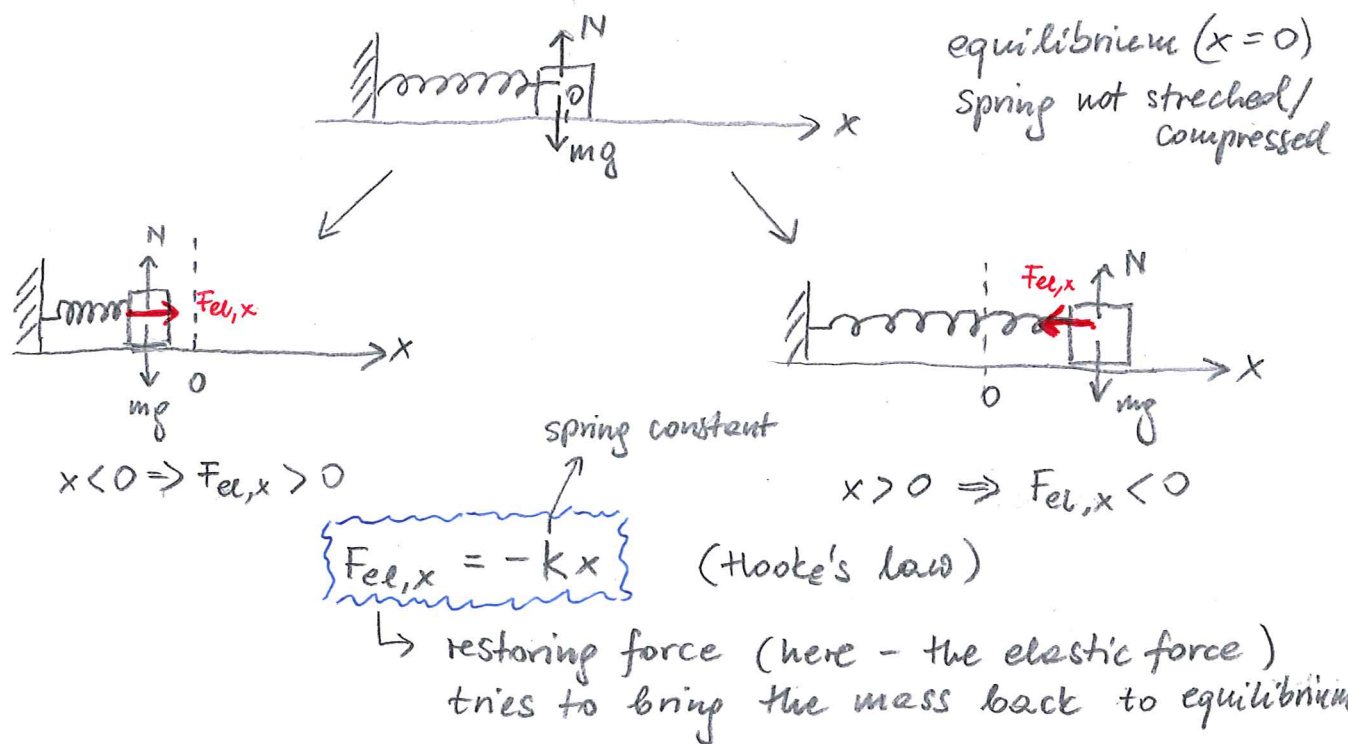 N
O
mg
x
equilibrium (x = 0)
spring not streched/
compressed
N
Fel,x
x
O
mg
x < 0 => Fel,x > 0
Fel,x
N
x
O
mg
x > 0 => Fel,x < 0
spring constant
Fel,x = -kx
(Hooke's law)
restoring force (here - the elastic force)
tries to bring the mass back to equilibrium